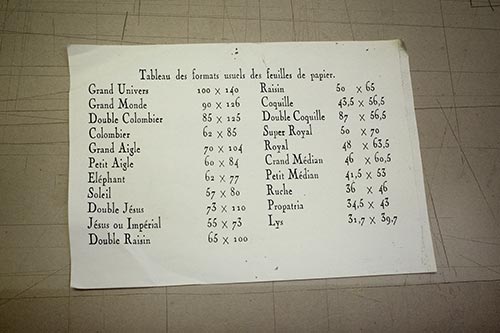 Tableau des formats usuels des feuilles de papier.
Grand Univers 100 x 140
Grand Monde 90 x 126
Double Colombier 85 x 125
Colombier 62 x 85
Grand Aigle 70 x 104
Petit Aigle 60 x 84
Eléphant 62 x 77
Soleil 57 x 80
Double Jésus 73 x 110
Jésus ou Impérial 55 x 73
Double Raisin 65 x 100
Raisin 50 x 65
Coquille 43,5 x 56,5
Double Coquille 87 x 56,5
Super Royal 50 x 70
Royal 48 x 63,5
Grand Médian 46 x 60,5
Petit Médian 41,5 x 53
Ruche 36 x 46
Propatria 34,5 x 43
Lys 31,7 x 39,7